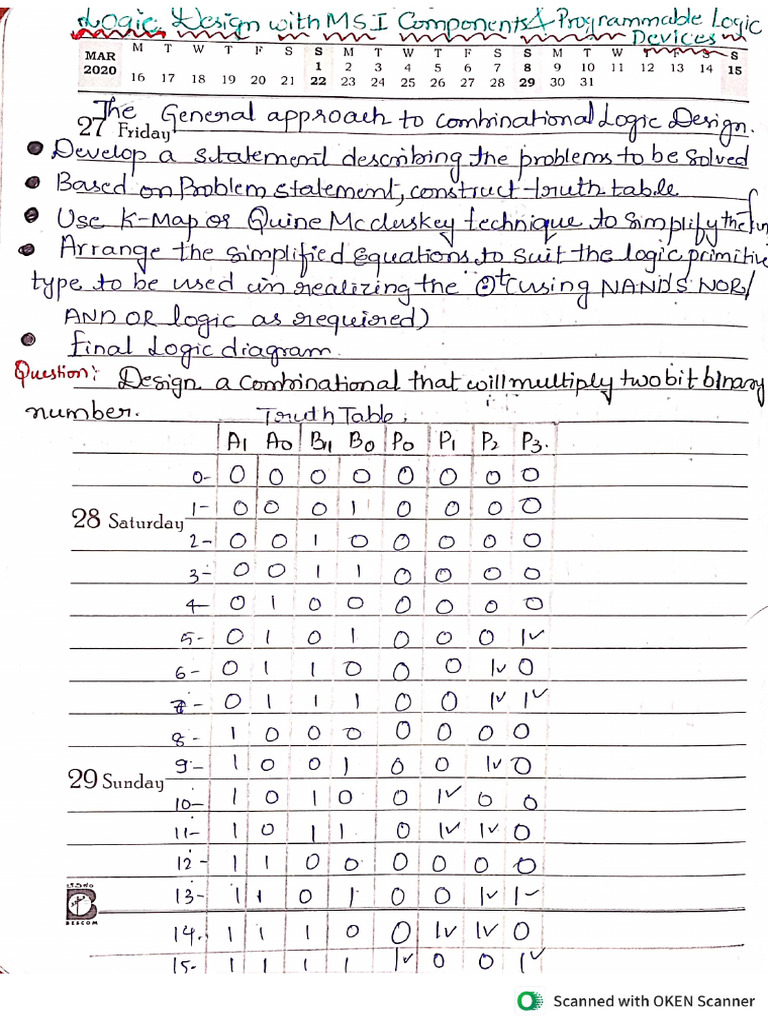 Logic Design with MSI Components & Programmable Logic
Devices
MAR 2020
M T W T F S S M T W T F S S M T W T F S S
1 2 3 4 5 6 7 8 9 10 11 12 13 14 15
16 17 18 19 20 21 22 23 24 25 26 27 28 29 30 31
The General approach to combinational Logic Design.
27 Friday
• Develop a statement describing the problems to be solved
• Based on Problem statement, construct truth table
• Use K-Map or Quine Mccluskey technique to simplify the fun
• Arrange the simplified Equations to suit the logic primitive
type to be used in realizing the (using NANDS NOR/
AND OR logic as required)
• final Logic diagram.
Question: Design a combinational that will multiply two bit binary
number.
Truth Table:
A1 A0 B1 B0 P0 P1 P2 P3.
0- 0 0 0 0 0 0 0 0
28 Saturday
1- 0 0 0 1 0 0 0 0
2- 0 0 1 0 0 0 0 0
3- 0 0 1 1 0 0 0 0
4- 0 1 0 0 0 0 0 0
5- 0 1 0 1 0 0 0 1✓
6- 0 1 1 0 0 0 1✓ 0
7- 0 1 1 1 0 0 1✓ 1✓
8- 1 0 0 0 0 0 0 0
29 Sunday
9- 1 0 0 1 0 0 1✓ 0
10- 1 0 1 0 0 1✓ 0 0
11- 1 0 1 1 0 1✓ 1✓ 0
12- 1 1 0 0 0 0 0 0
13- 1 1 0 1 0 0 1✓ 1✓
14. 1 1 1 0 0 1✓ 1✓ 0
15- 1 1 1 1 1✓ 0 0 1✓
BESCOM
Scanned with OKEN Scanner